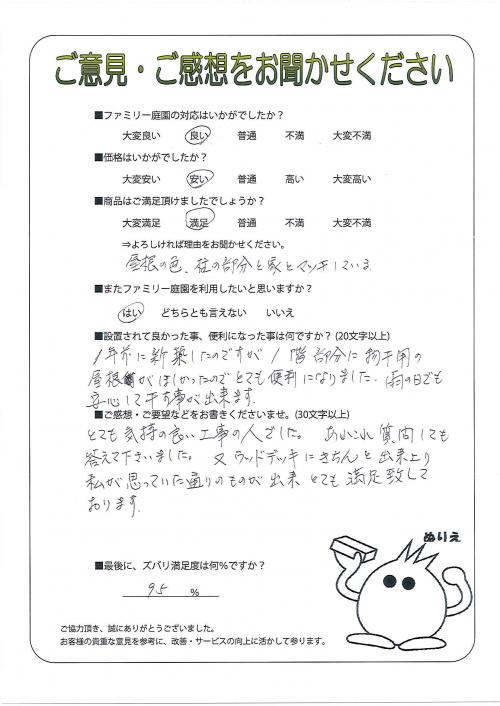 ご意見・ご感想をお聞かせください
■ファミリー庭園の対応はいかがでしたか？
大変良い 良い 普通 不満 大変不満
■価格はいかがでしたか？
大変安い 安い 普通 高い 大変高い
■商品はご満足頂けましたでしょうか？
大変満足 満足 普通 不満 大変不満
⇒よろしければ理由をお聞かせください。
屋根の色、柱の部分と家とマッチしている
■またファミリー庭園を利用したいと思いますか？
はい どちらとも言えない いいえ
■設置されて良かった事、便利になった事は何ですか？(20文字以上)
1年前に新築したのですが1階部分に物干用の
屋根がほしかったのでとても便利になりました。雨の日でも
安心して干す事が出来ます。
■ご感想・ご要望などをお書きくださいませ。(30文字以上)
とても気持の良い工事の人でした。 あれこれ質問しても
答えて下さいました。 又ウッドデッキにきちんと出来上り
私が思っていた通りのものが出来 とても満足致して
おります。
ぬりえ
■最後に、ズバリ満足度は何%ですか？
95 %
ご協力頂き、誠にありがとうございました。
お客様の貴重な意見を参考に、改善・サービスの向上に活かして参ります。